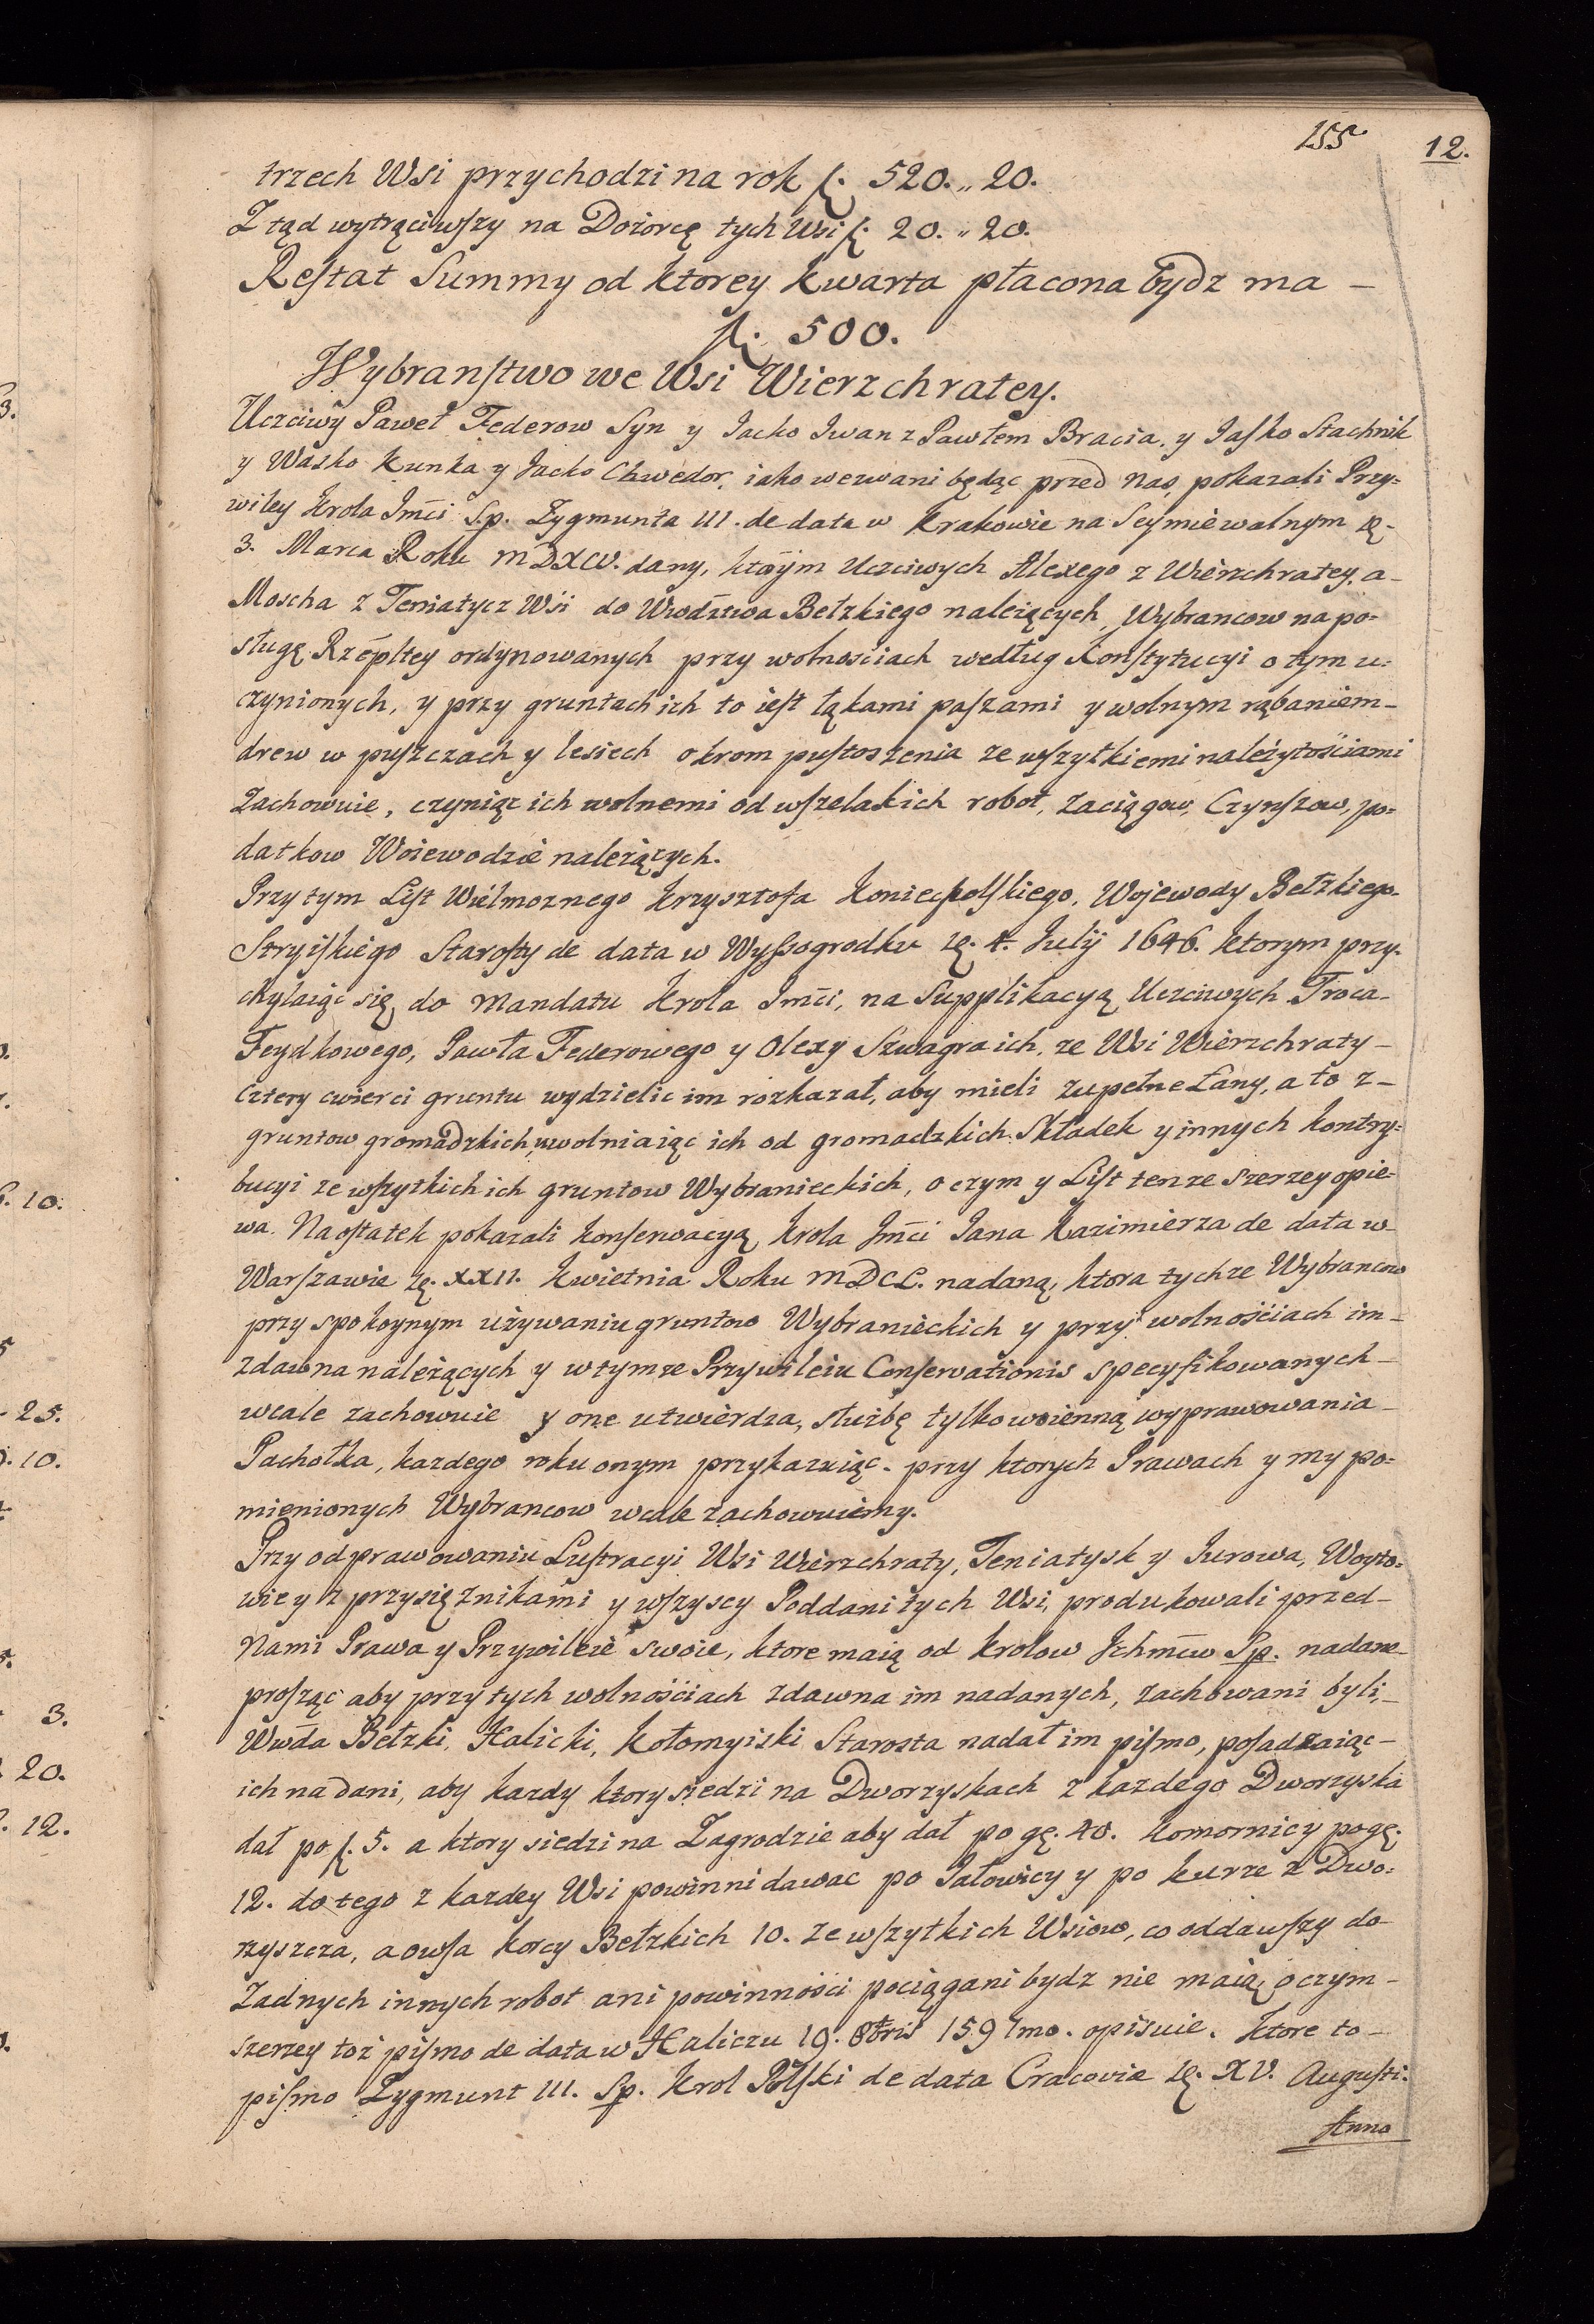 155
12.
trzech Wsi przychodzi na rok f. 520. „ 20.
Z tąd wytrąciwſzy na Dozorcę tych Wsi f. 20. „ 20.
Reſtat Summy od ktorey kwarta płacona bydz ma —
f. 500.
Wybranſtwo we Wsi Wierzchratey.
Uczciwy Paweł Federow Syn y Jacko Iwan z Pawłem Bracia, y Jaſko Stachnik
y Wasko Kunka y Jacko Chwedor, iako wezwani będąc przed nas, pokazali Przy-
wiley Krola Jmći S.p. Zygmunta III. de data w Krakowie na Seymie walnym
3. Marca Roku MDXCV. dany, ktorym Uczciwych Alexego z Wierzchratey, a
Moscha z Teniatycz Wśi do Wwodztwa Bełzkiego należących, Wybrancow na po-
sługę Rzépltey ordynowanych przy wolnosciach według Konſtytucyi o tym u-
czynionych, y przy gruntach ich to ieſt łąkami paſzami y wolnym rąbaniem-
drew w puſzczach y lesiech okrom puſtoszenia ze wſzytkiemi należytościami
zachowuie, czyniąc ich wolnemi od wſzelakich robot, zaciągow, Czynſzow, po-
datkow Woiewodzie należących.
Przy tym Liſt Wielmoznego Krzysztofa Koniecpolſkiego, Wojewody Bełzkiego-
Stryiſkiego Staroſty de data w Wyſsogrodku 4. July 1646. ktorym przy-
chylaiąc się do Mandatu Krola Jmći, na Supplikacyą Uczciwych Troca-
Feydkowego, Pawła Federowego y Olexy Szwagra ich, ze Wsi Wierzchraty-
cztery cwierci gruntu wydzielic im rozkazał, aby mieli zupełne Łany, a to z-
gruntow gromadzkich, uwolniaiąc ich od gromadzkich Składek y innych kontry-
bucyi ze wſzytkich ich gruntow Wybranieckich, o czym y Liſt tenze szerzey opie-
wa. Na oſtatek pokazali konſerwacyą Krola Jmći Jana Kazimierza de data w-
Warſzawie XXII. Kwietnia Roku MDCL. nadaną, ktora tychze Wybrancow
przy spokoynym używaniu gruntow Wybranieckich y przy wolnościach im-
zdawna należących y w tymze Przywileiu Conſervationis specyfikowanych-
wcale zachowuie y one utwierdza, służbę tylko woienną wyprawowania-
Pachołka, kazdego roku onym przykazuiąc. przy ktorych Prawach y my po-
mienionych Wybrancow wcale zachowuiemy.
Przy odprawowaniu Luſtracyi Wsi Wierzchraty, Teniatysk y Jurowa, Woyto-
wie y z przysięznikami y wſzyscy Poddani tych Wsi, produkowali przed-
Nami Prawa y Przywileie swoie, ktore maią od Krolow Jchmćiw S.p. nadane-
proſząc aby przy tych wolnościach zdawna im nadanych, zachowani byli,-
Wwda Bełzki, Halicki, Kołomyiski Starosta nadał im piſmo, poſadzaiąc-
ich na dani, aby kazdy ktory siedzi na Dworzyskach z kazdego Dworzyska
dał po f. 5. a ktory siedzi na Zagrodzie aby dał po gę. 40. Komornicy po gę.
12. do tego z kazdey Wsi powinni dawac po Jałowicy y po kurze z Dwo-
rzyszcza, a owſa korcy Bełzkich 10. ze wſzytkich Wsiow, co oddawſzy do-
Zadnych innych robot ani powinności pociągani bydz nie maią, o czym-
szerzey toż piſmo de data w Haliczu 19. 8bris 1591mo. opisuie. ktore to-
piſmo Zygmunt III. S.p. Krol Polſki de data Cracoviæ XV. Auguſti.
Anno
3.
10.
25.
10.
3.
20.
12.